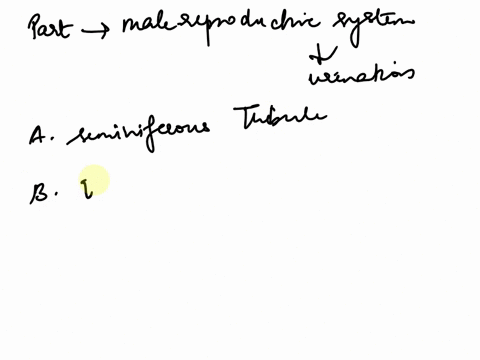 Part → male reproductive system
↓
urinations
A. seminiferous Tubule
B. I